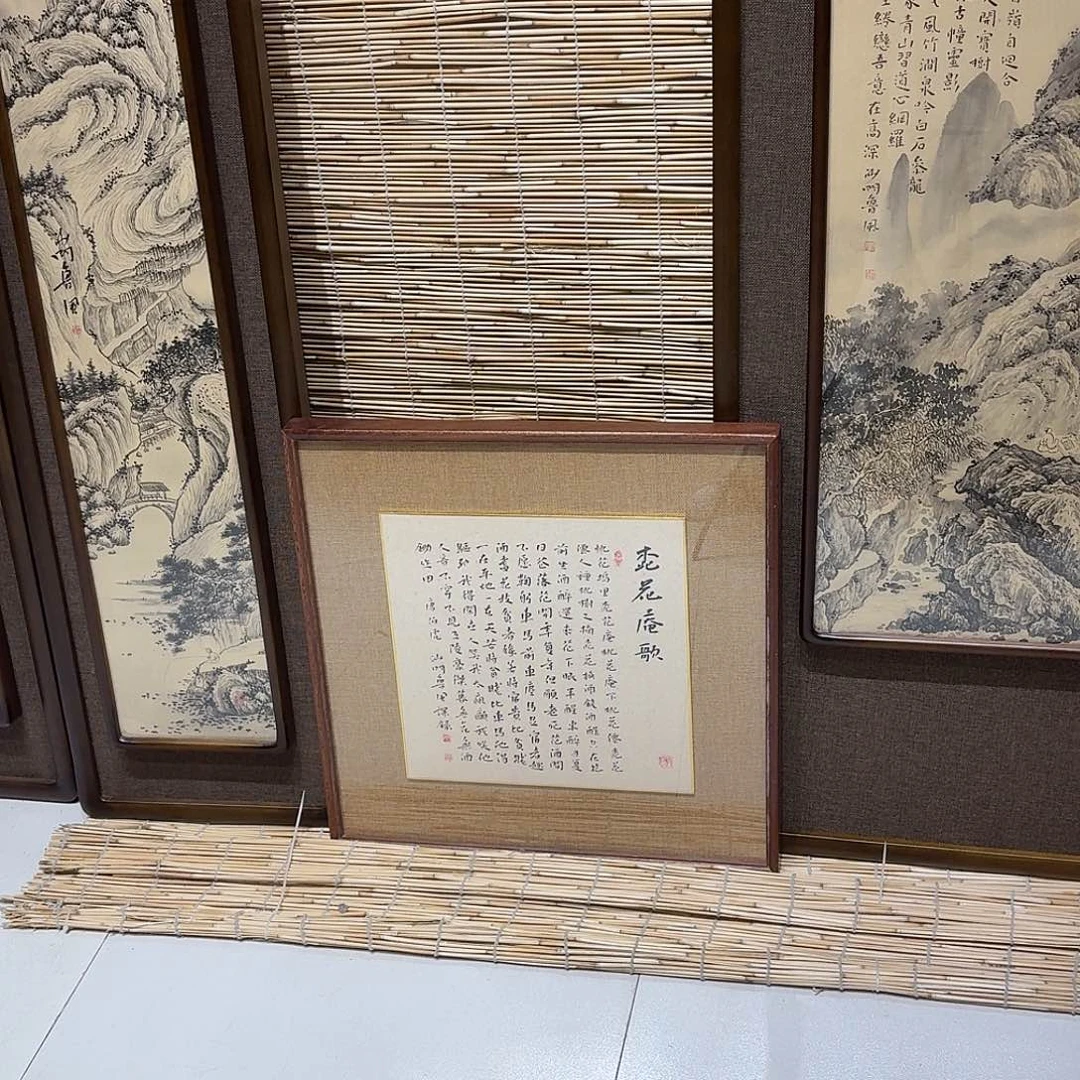 山明魯風
嶺自迴合
開寶樹
古幢靈影
風竹澗泉吟白石參龍
象青山習道心網羅
戀吾意在高深山明魯風
桃花庵歌
桃花塢里桃花庵桃花庵下桃花僊桃花
僊人種桃樹又摘桃花換酒錢酒醒只在花
前坐酒醉還来花下眠半醒半醉日復
日花落花開年復年但願老死花酒間
不愿鞠躬車馬前車塵馬足富者趣
酒盞花枝貧者緣若將富貴比貧賤
一在平地一在天若將貧賤比車馬他得
驅馳我得閑世人笑我太瘋癲我笑他
人看不穿不見五陵豪傑墓無花無酒
鋤作田 唐伯虎 山明魯風課錄